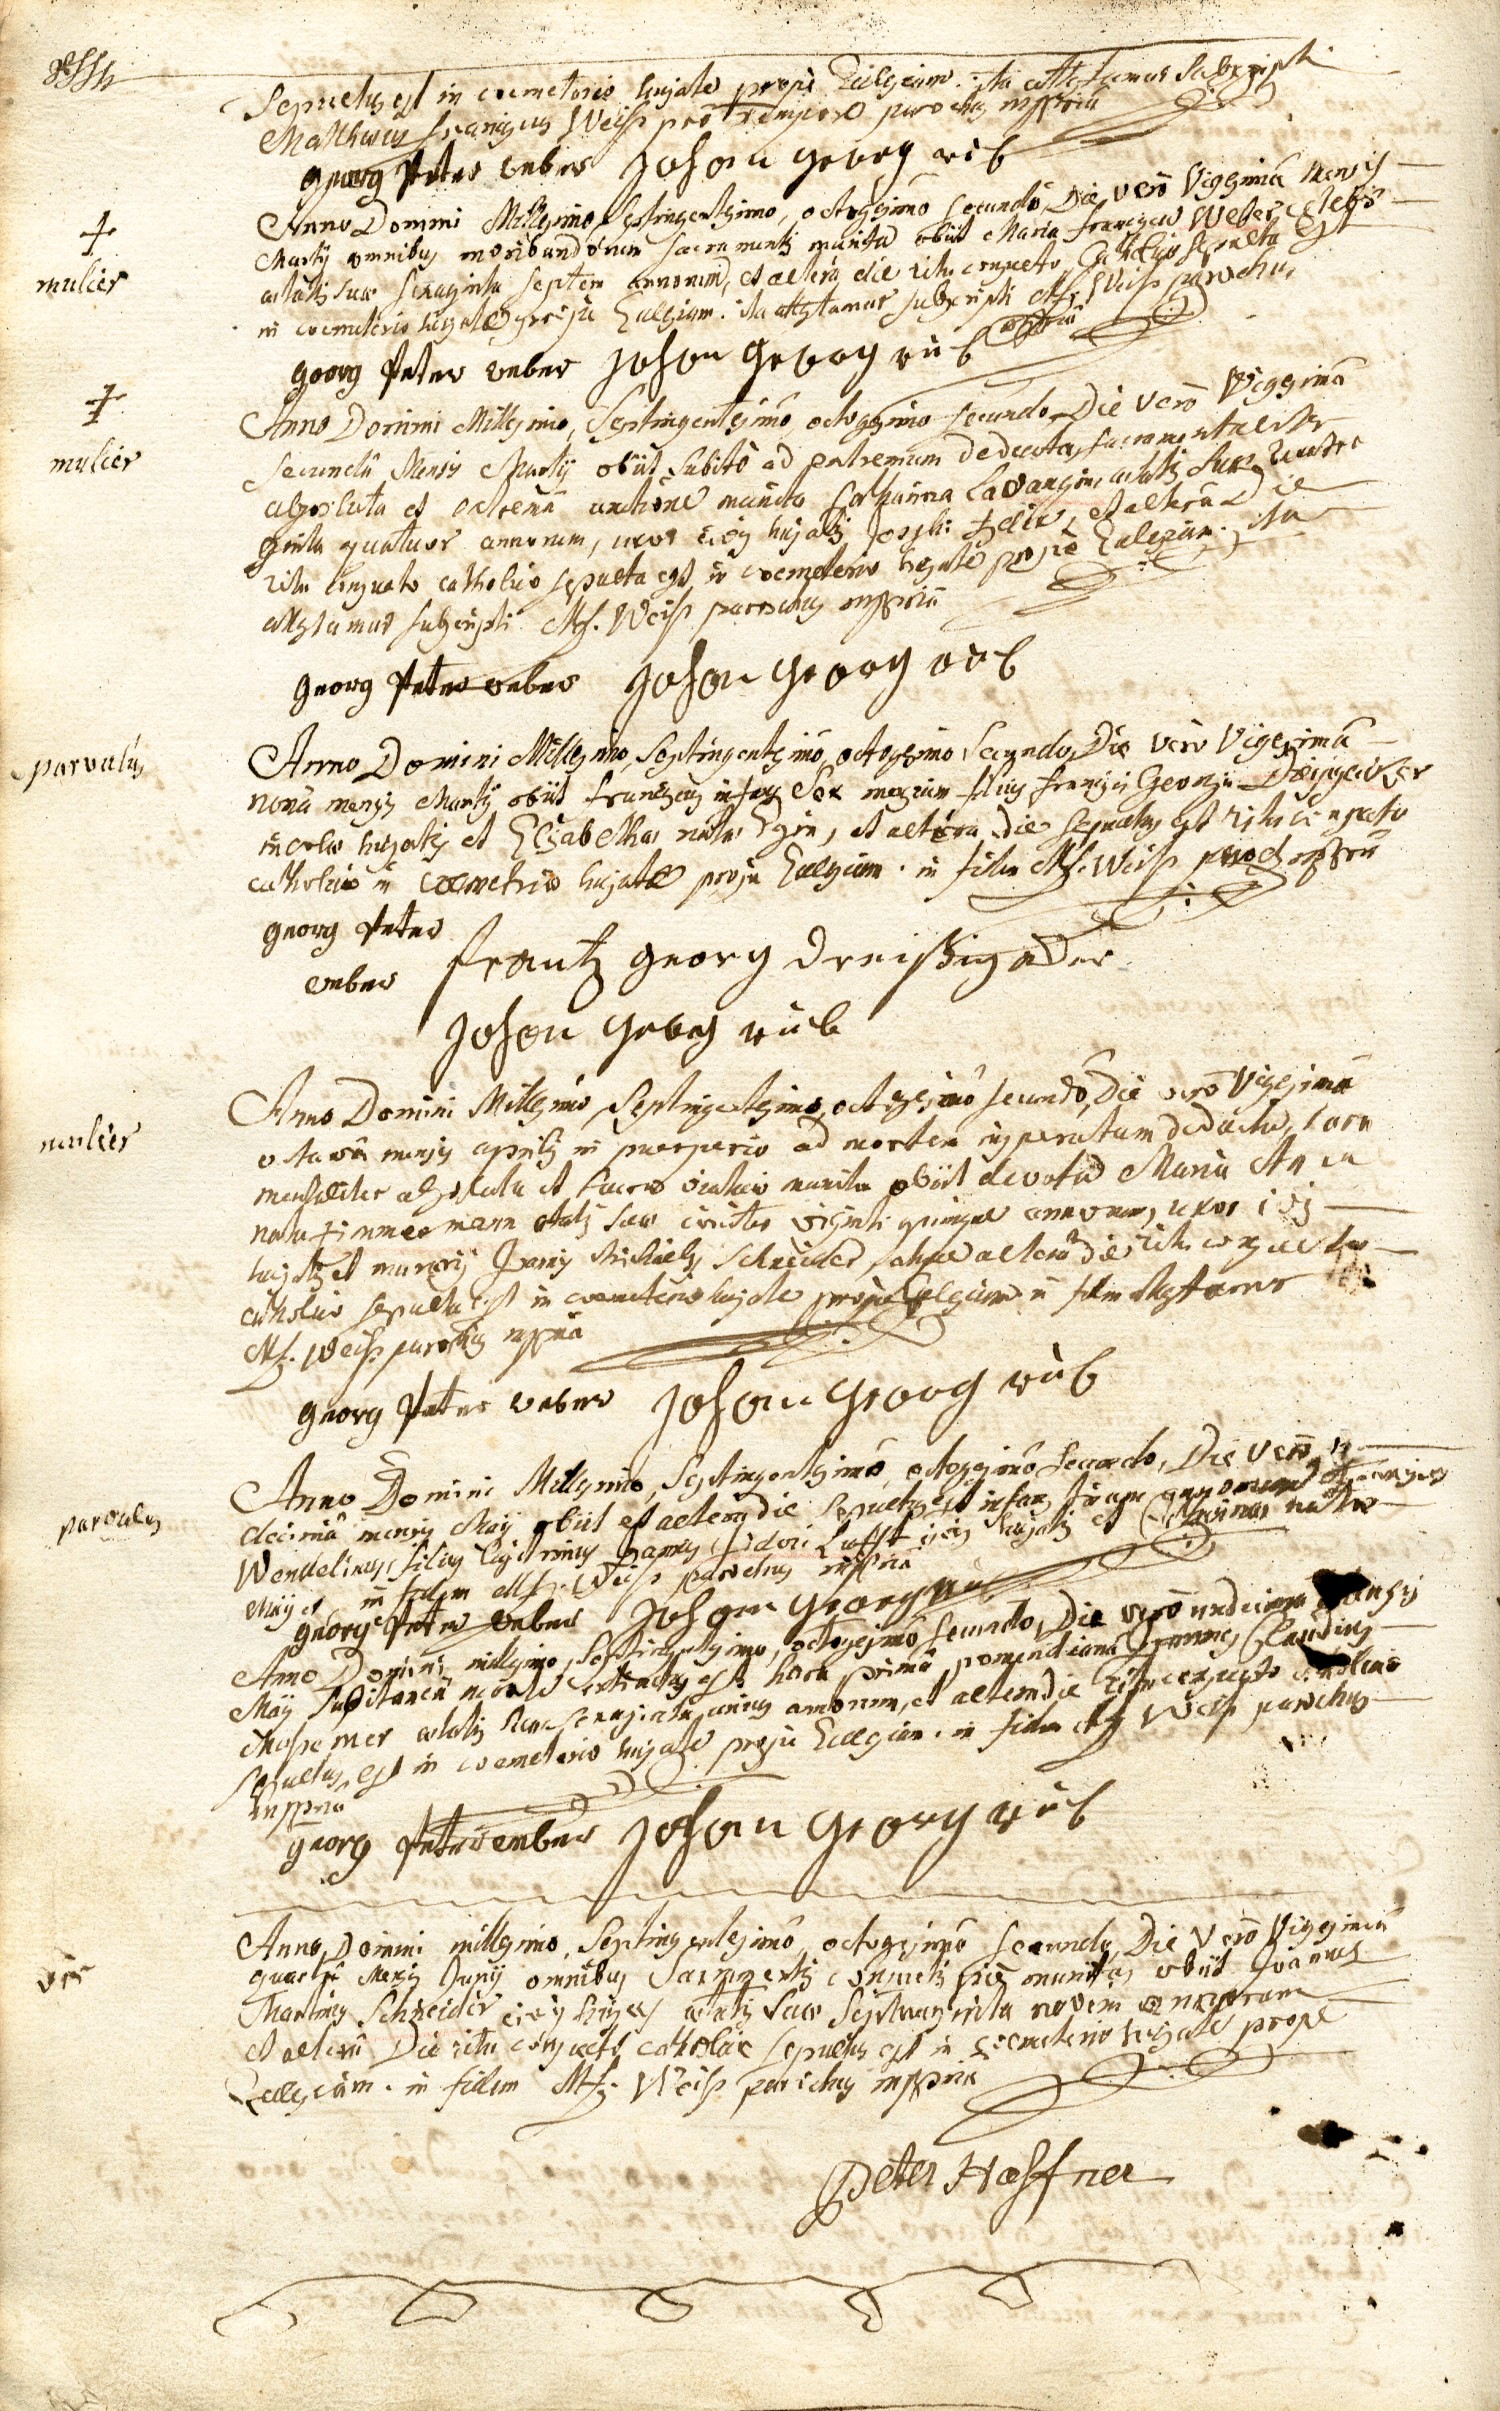 Sepultus est in coemeterio hujate prope Ecclesiam. ita attestamur subscripti
Matthaeus Franciscus Weiß pro tempore parochus mppria
georg Peter weber Johan georg rüb
mulier
Anno Domini Millesimo, Septingentesimo, octogesimo secundo, Die vero Vigesima mensis
Martij omnibus moribundorum sacramentis munita obiit Maria Francisca Weber caelebs
aetatis suae sexaginta septem annorum, et altera die ritu consueto Catholico sepulta est
in coemeterio hujate prope Ecclesiam. ita attestamur subscripti Mf. Weiß parochus
mppria
georg Peter weber Johan Georg rüb
mulier
Anno Domini Millesimo, Septingentesimo octogesimo secundo, Die vero Vigesima
secunda Mensis Martij obiit subito ad extremum deducta, sacramentaliter
absoluta et extrema unctione munita Catharina Lavangin, aetatis suae
ginta quatuor annorum, uxor civis hujatis Josephi, et altera Die
ritu consueto catholico sepulta est in coemeterio hujate prope Ecclesiam. ita
attestamur subscripti Mf. Weiß parochus mppria
georg Peter weber Johan georg rüb
parvulus
Anno Domini Millesimo, Septingentesimo, octogesimo Secundo, Die vero Vigesima
nona mensis Martij obiit Franciscus infans Sex mensium filius Francisci Georgij Dreißigacker
incolae hujatis et Elisabethae natae Egin, et altera die sepultus est ritu consueto
catholico in coemeterio hujate prope Ecclesiam. in fidem Mf. Weiß paroch mppria
georg Peter
weber frantz georg Dreißigacker
Johan georg rüb
mulier
Anno Domini Millesimo, Septingentesimo, octogesimo secundo, Die vero Vigesima
octava mensis aprilis in puerperio ad mortem insperatam deducta, sacra
mentaliter absoluta et sacro viatico munita obiit devota Maria Anna
nata Zimmermann aetatis suae circiter viginti quinque annorum, uxor civis
hujatis et murarij Joannis Michaelis Schneider, altera die ritu consueto
catholico sepulta est in coemeterio hujate prope Ecclesiam in fidem attestamur
Mf. Weiß parochus mppria
georg Peter weber Johan Georg rüb
parvulus
Anno Domini Millesimo, Septingentesimo, octogesimo secundo, Die vero
decima mensis Maij obiit et altera die sepultus est infans annorum
Wendelinus, filius legitimus Isidori Lufft civis hujatis et natae
Mayer in fidem Mf. Weiß parochus mppria
georg Peter weber Johan Georg rüb
Anno Domini millesimo, Septingentesimo, octogesimo secundo, Die vero undecima mensis
Maij subitanea morte extinctus est hora prima pomeridiana Joannes Claudius
aetatis suae sexaginta unius annorum, et altera die ritu consueto catholico
sepultus est in coemeterio hujate prope Ecclesiam. in fidem Mf Weiß parochus
mppria
georg Peter weber Johan Georg rüb
vir
Anno Domini millesimo, Septingentesimo, octogesimo secundo, Die Vero Vigesima
quarta Mensis Junij omnibus Sacramentis consuetis pie munitus obiit Joannes
Martinus Schneider civis hujas aetatis suae Septuaginta novem annorum
et altera Die ritu consueto catholico sepultus est in coemeterio hujate prope
Ecclesiam. in fidem Mf. Weiß parochus mppria
Peter Haffner